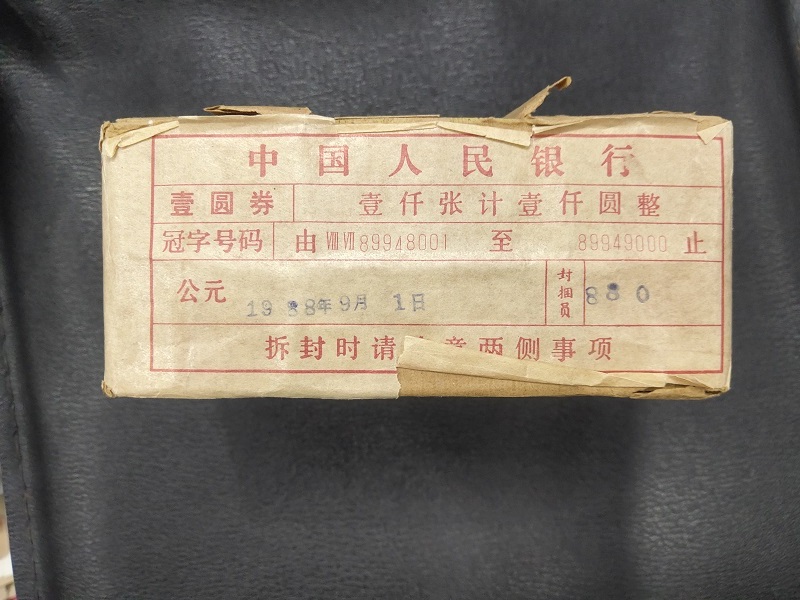 中国人民银行
壹圆券 壹仟张计壹仟圆整
冠字号码 由ⅧⅦ89948001 至 89949000 止
公元 19 8年9月1日 封捆员 880
拆封时请 意两侧事项